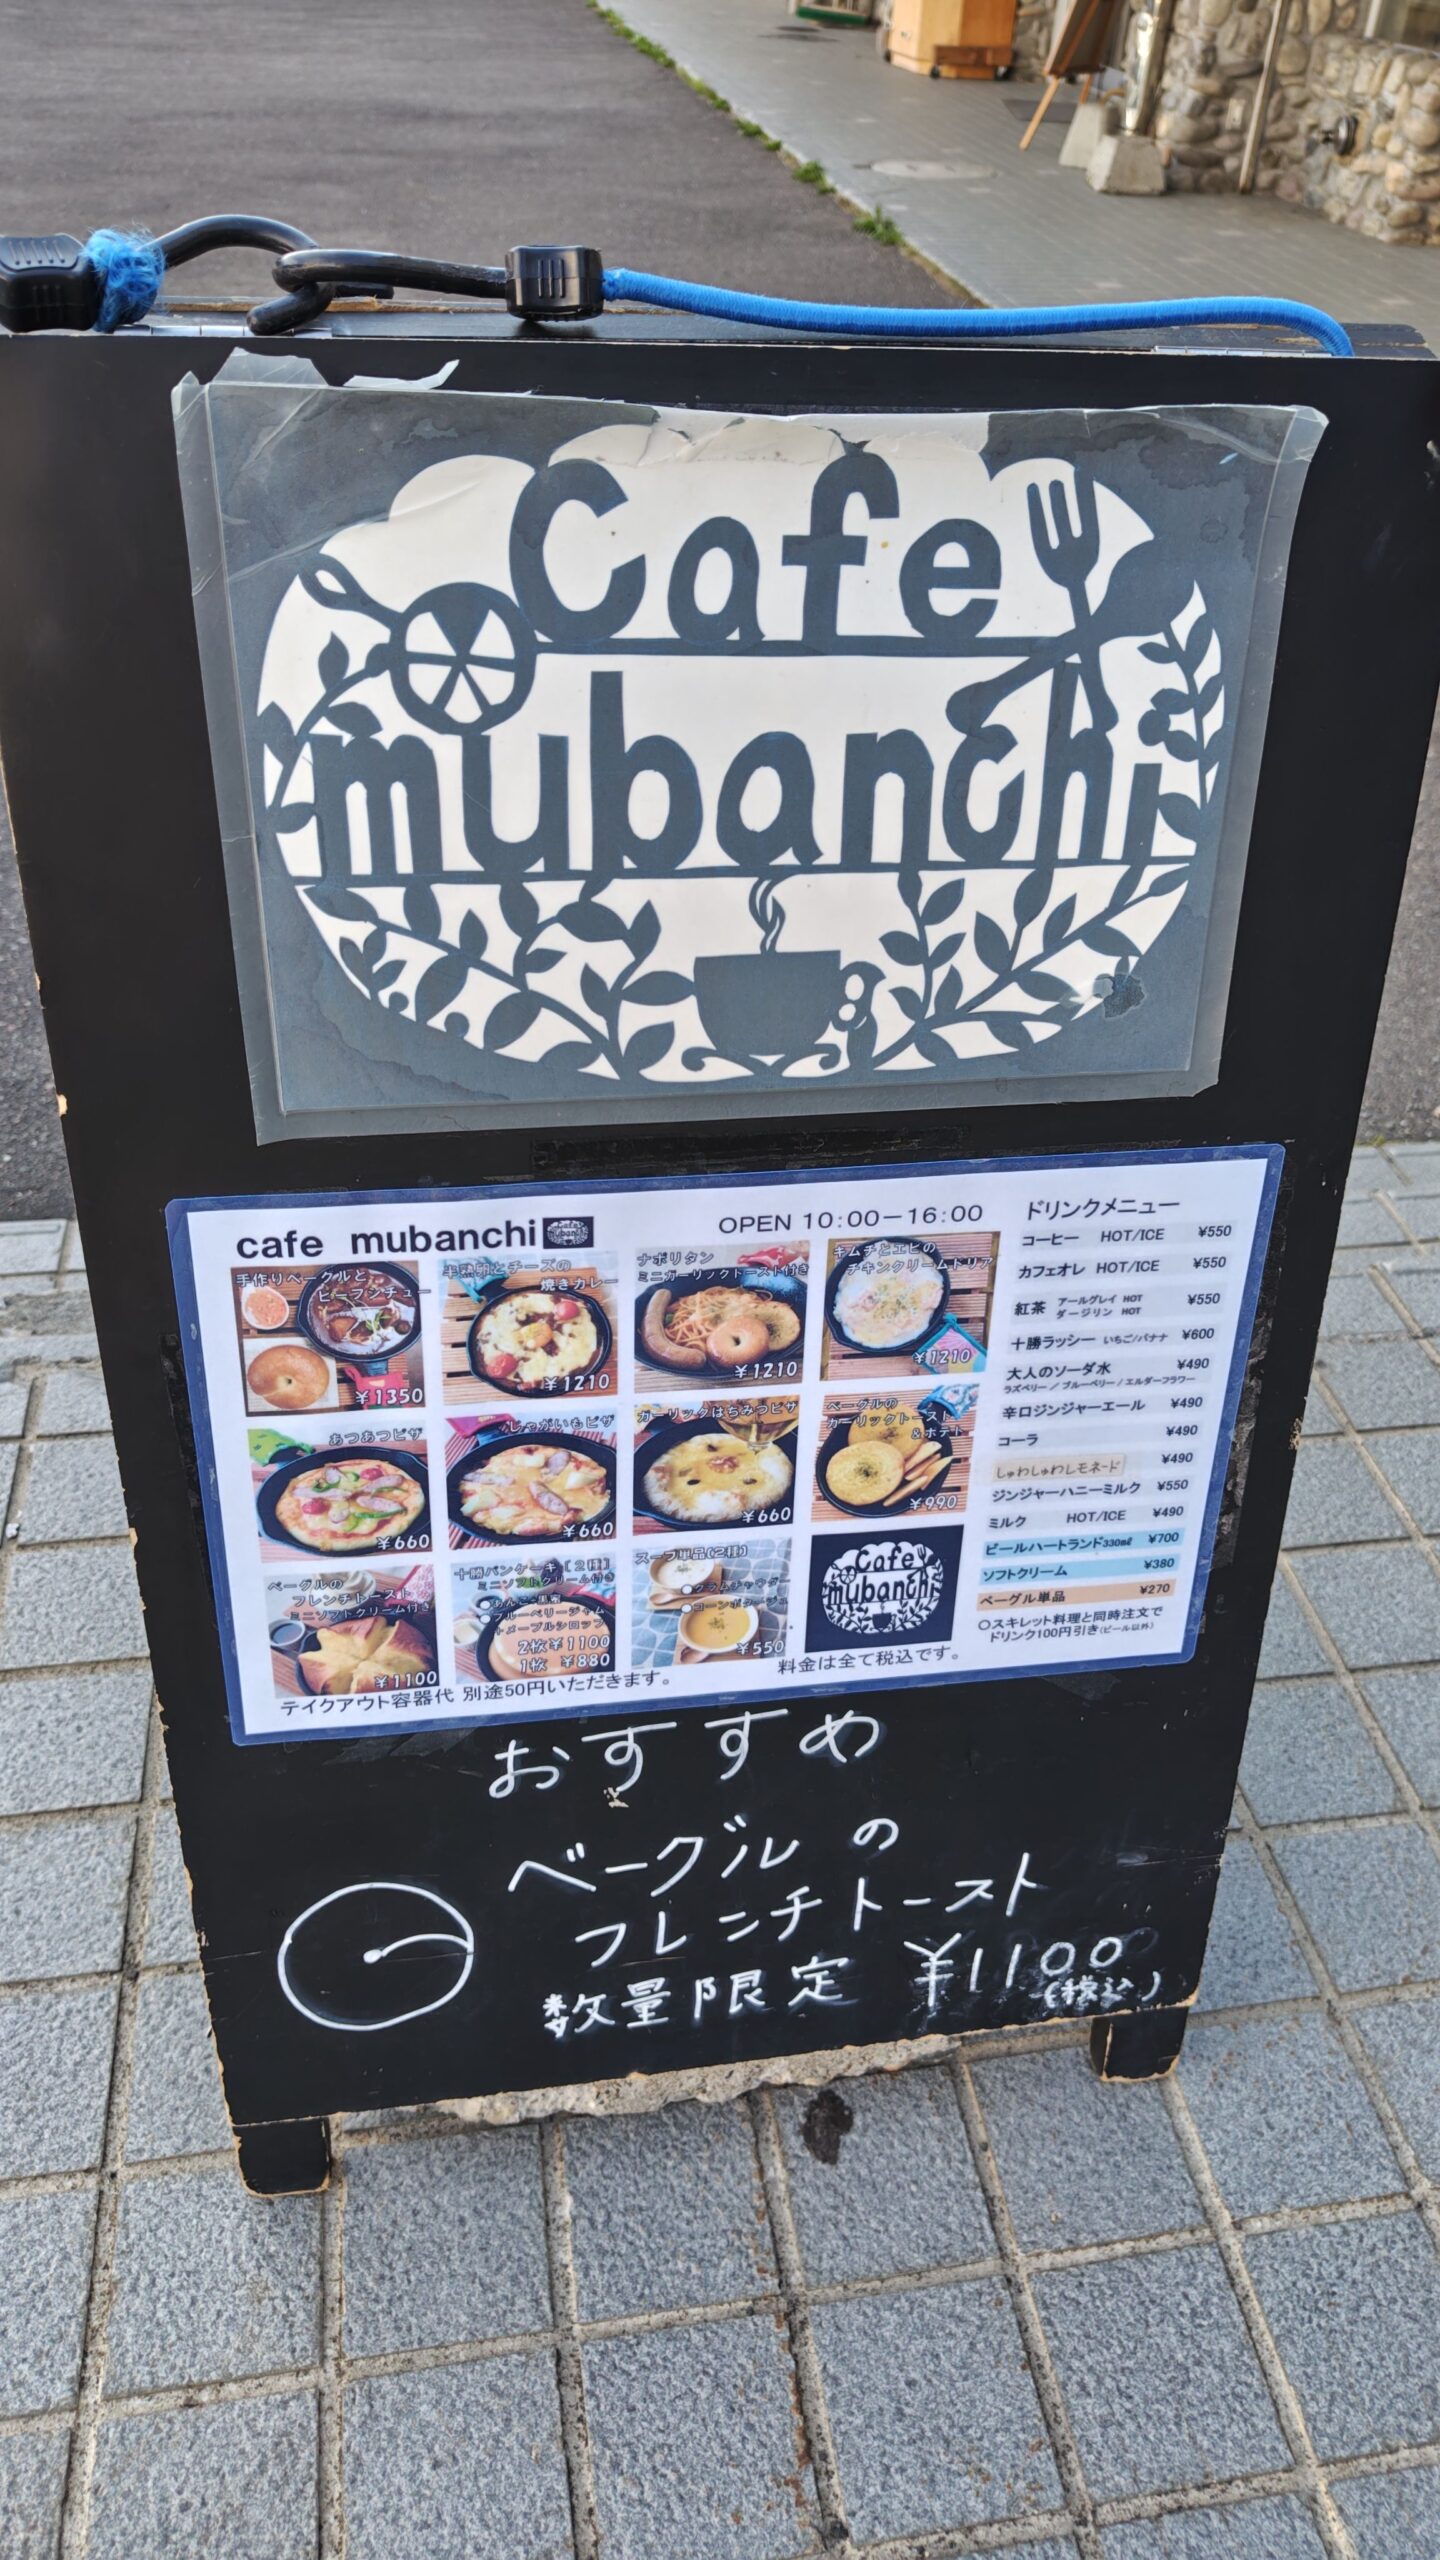 Cafe
mubanchi
cafe mubanchi
OPEN 10:00−16:00
手作りベーグルと
ビーフシチュー
¥1350
半熟卵とチーズの
焼きカレー
¥1210
ナポリタン
ミニガーリックトースト付き
¥1210
キムチとエビの
チキンクリームドリア
¥1210
あつあつピザ
¥660
じゃがいもピザ
¥660
ガーリックはちみつピザ
¥660
ベーグルの
ガーリックトースト
&ポテト
¥990
ベーグルの
フレンチトースト
ミニソフトクリーム付き
¥1100
十勝パンケーキ[2種]
ミニソフトクリーム付き
●あんこ+黒蜜
●ブルーベリージャム
+メープルシロップ
2枚¥1100
1枚 ¥880
スープ単品[2種]
●クラムチャウダー
●コーンポタージュ
¥550
Cafe
mubanchi
テイクアウト容器代 別途50円いただきます。
料金は全て税込です。
ドリンクメニュー
コーヒー HOT/ICE ¥550
カフェオレ HOT/ICE ¥550
紅茶 アールグレイ HOT ¥550
ダージリン HOT
十勝ラッシー いちご/バナナ ¥600
大人のソーダ水 ¥490
ラズベリー/ブルーベリー/エルダーフラワー
辛口ジンジャーエール ¥490
コーラ ¥490
しゅわしゅわレモネード ¥490
ジンジャーハニーミルク ¥550
ミルク HOT/ICE ¥490
ビールハートランド330㎖ ¥700
ソフトクリーム ¥380
ベーグル単品 ¥270
○スキレット料理と同時注文で
ドリンク100円引き(ビール以外)
おすすめ
ベーグルの
フレンチトースト
数量限定 ¥1100
(税込)